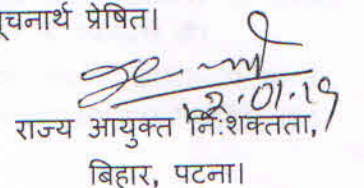 सूचनार्थ प्रेषित।
2.01.19
राज्य आयुक्त निःशक्तता,
बिहार, पटना।